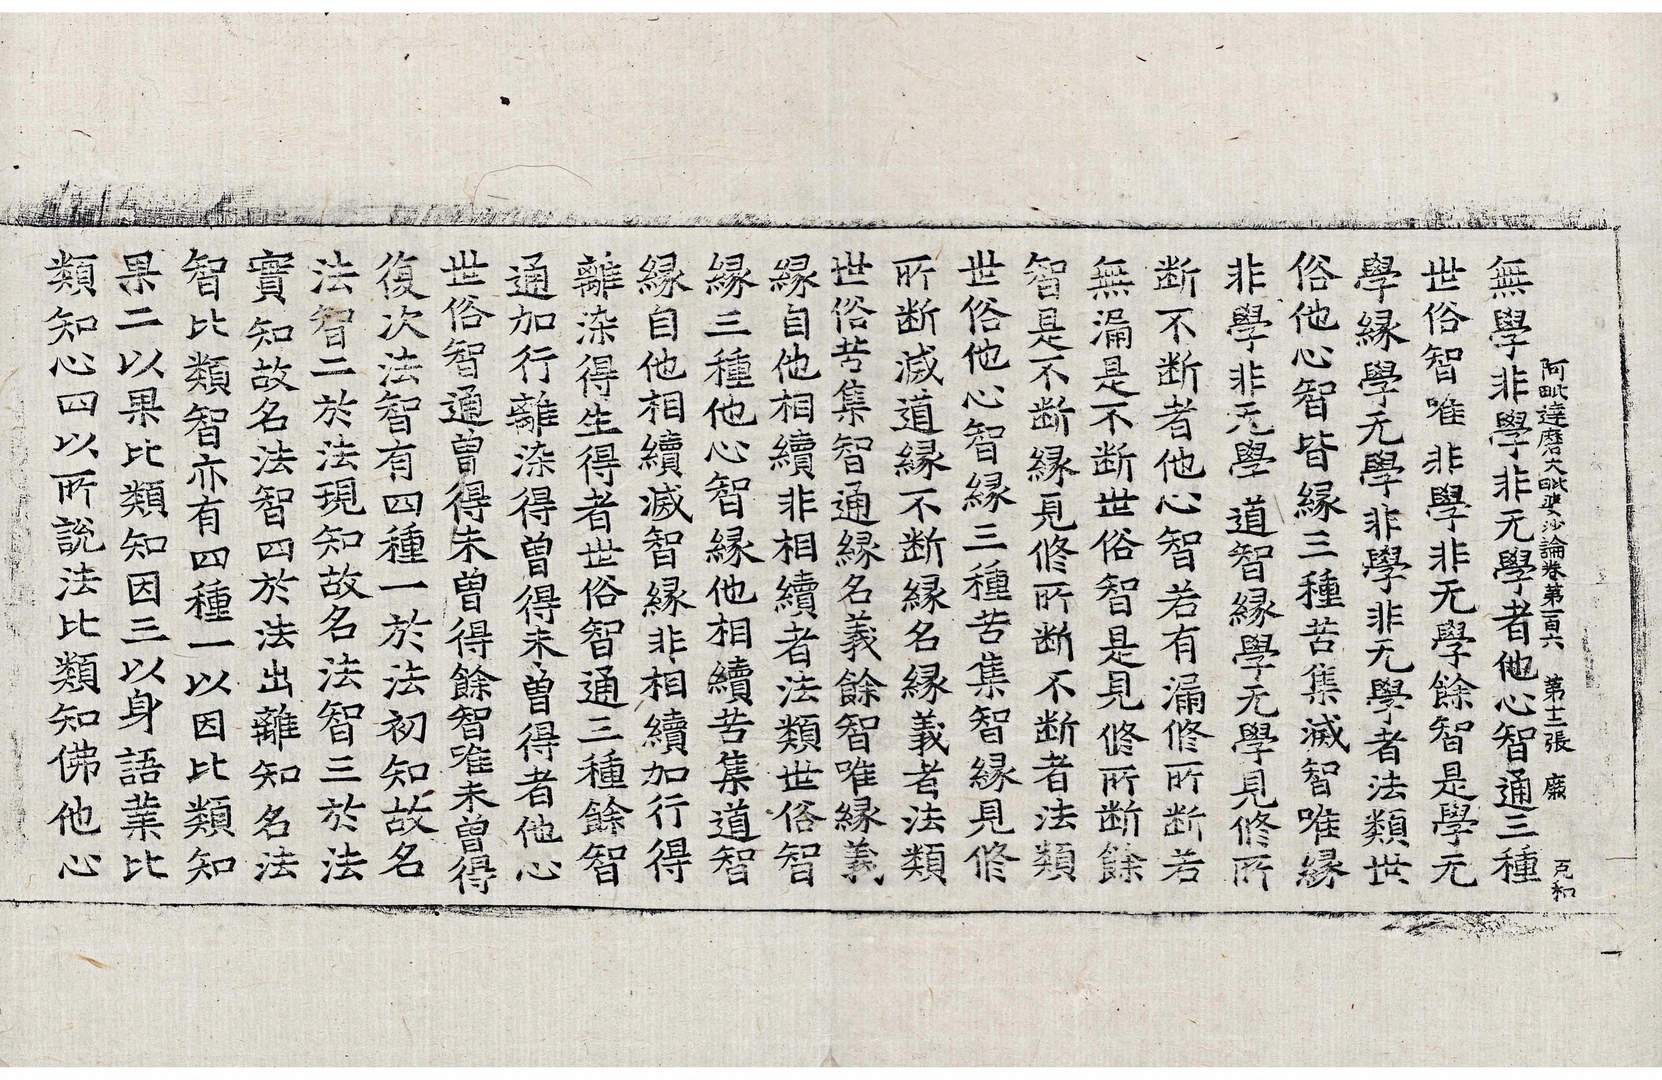 阿毗達磨大毗婆沙論卷第一百六　第十三張　廉　克和
無學非學非无學者他心智通三種
世俗智唯非學非无學餘智是學无
學縁學无學非學非无學者法類世
俗他心智皆縁三種苦集滅智唯縁
非學非无學道智縁學无學見修所
断不断者他心智若有漏修所断若
無漏是不断世俗智是見修所断餘
智是不断縁見修所断不断者法類
世俗他心智縁三種苦集智縁見修
所断滅道縁不断縁名縁義者法類
世俗苦集智通縁名義餘智唯縁義
縁自他相續非相續者法類世俗智
縁三種他心智縁他相續苦集道智
縁自他相續滅智縁非相續加行得
離染得生得者世俗智通三種餘智
通加行離染得曾得未曾得者他心
世俗智通曾得未曾得餘智唯未曾得
復次法智有四種一於法初知故名
法智二於法現知故名法智三於法
實知故名法智四於法出離知名法
智比類智亦有四種一以因比類知
果二以果比類知因三以身語業比
類知心四以所說法比類知佛他心